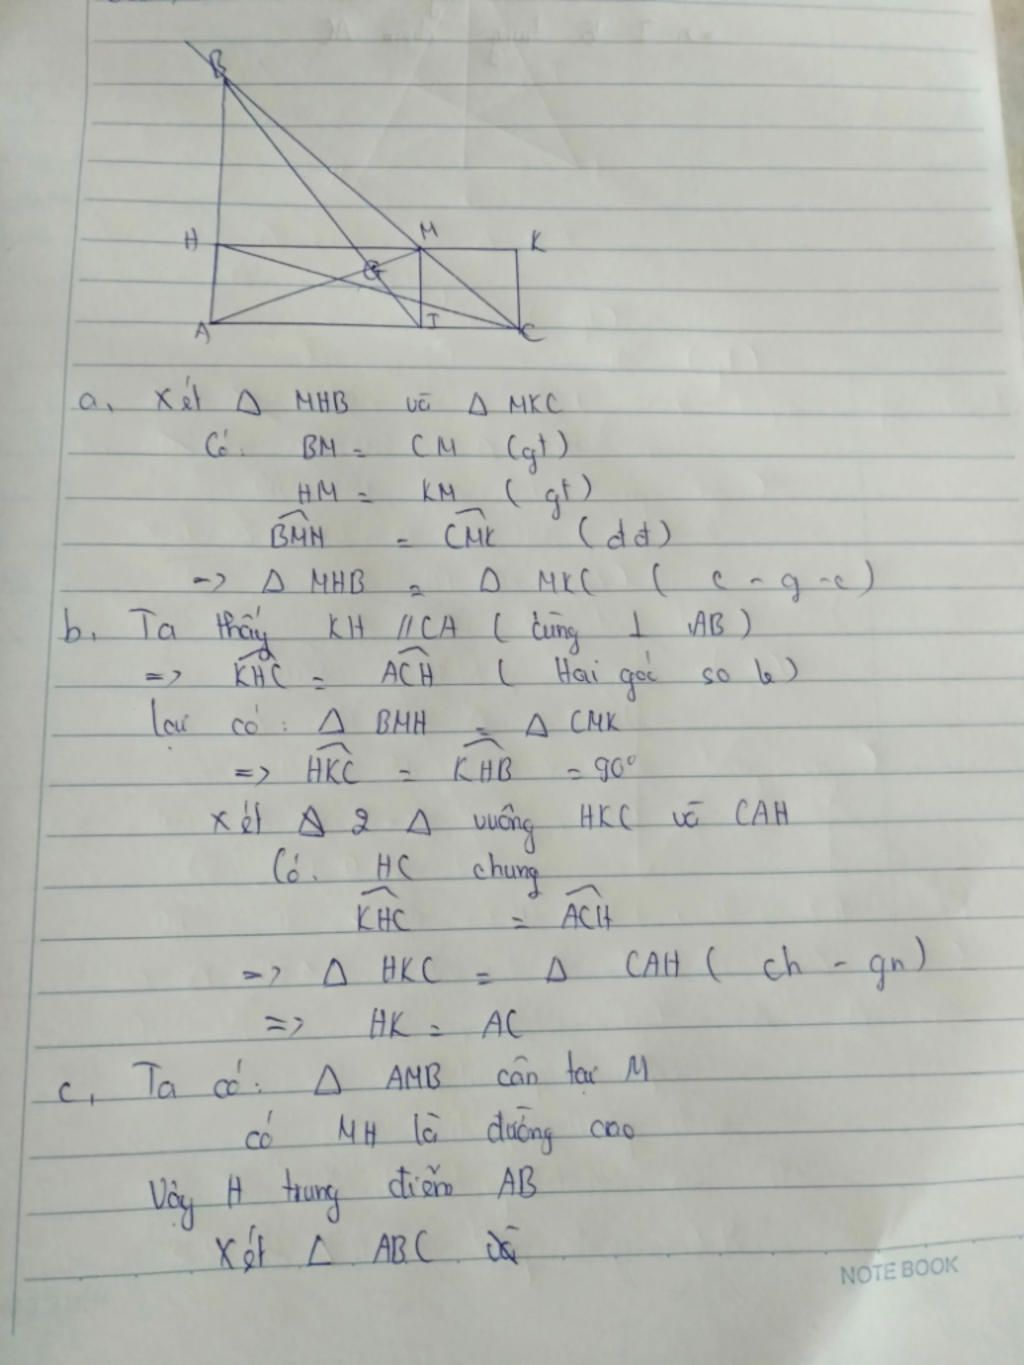 B
H
M
K
G
A
I
C
a, Xét Δ MHB và Δ MKC
Có: BM = CM (gt)
HM = KM (gt)
\widehat{BMH} = \widehat{CMK} (đđ)
=> Δ MHB = Δ MKC (c - g - c)
b, Ta thấy KH // CA (cùng ⊥ AB)
=> \widehat{KHC} = \widehat{ACH} (Hai góc so le)
lại có: Δ BMH = Δ CMK
=> \widehat{HKC} = \widehat{KHB} = 90°
Xét 2 Δ vuông HKC và CAH
Có. HC chung
\widehat{KHC} = \widehat{ACH}
=> Δ HKC = Δ CAH (ch - gn)
=> HK = AC
c, Ta có: Δ AMB cân tại M
có MH là đường cao
Vậy H trung điểm AB
Xét Δ ABC
NOTE BOOK